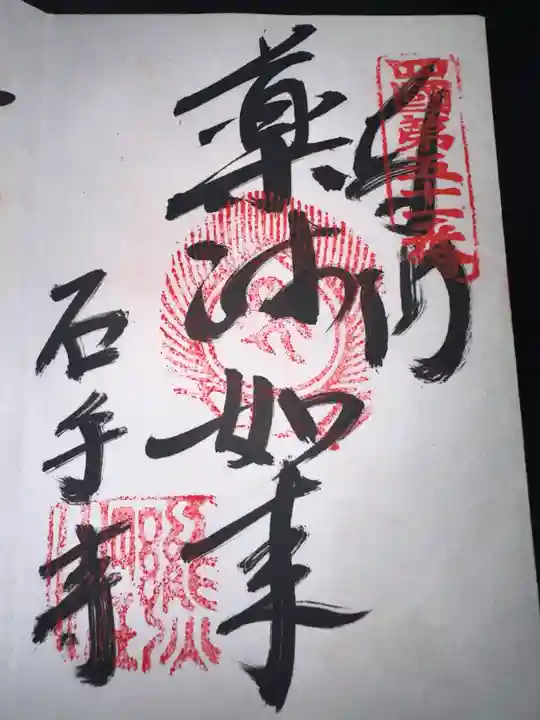 四國第五十一番
奉納
薬師如来
石手寺